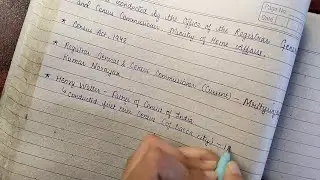 Page No.
Date
conducted by the office of the Registrar General
and Census Commissioner, Ministry of Home Affairs.
* Census Act - 1948
* Registrar General & Census Commissioner (Current) =
Kumar Narayan
* Henry Walter - Father of Census of India
↳ conducted first ever Census (of Dacca city) -